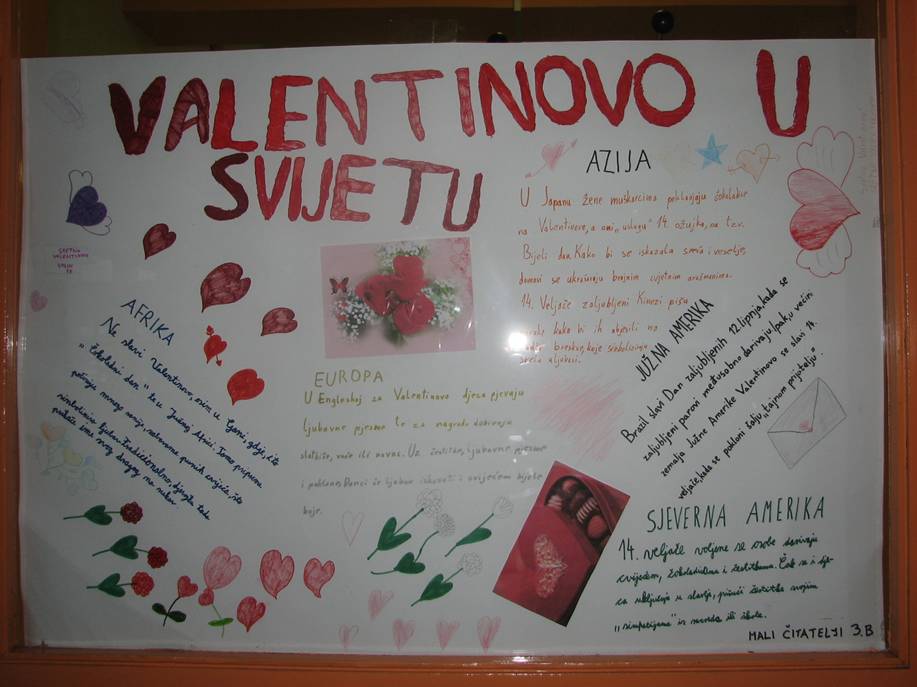 VALENTINOVO U
SVIJETU
AZIJA
U Japanu žene muškarcima poklanjaju čokolade
na Valentinovo, a oni „uslugu" 14. ožujka, na tzv.
Bijeli dan. Kako bi se iskazala sreća i veselje,
domovi se ukrašuju brojnim cvjetnim aranžmanima.
14. Veljače zaljubljeni Kinezi pišu
kako bi ih objesili na
breskve, koje simboliziraju
sreću u ljubavi.
AFRIKA
Ne slavi Valentinovo, osim u Gani, gdje je to
"Čokoladni dan" te u Južnoj Africi. Tamo priprema
mnogo
simbolizira ljubav. Tradicionalno, djevojke tada
ime svog dragog na rukav.
EUROPA
U Engleskoj za Valentinovo djeca pjevaju
ljubavne pjesme te za nagradu dobivaju
slatkiše, voće ili novac. Uz čestitke, ljubavne pjesme
i poklone, Danci će ljubav iskazati i cvijećem bijele
boje.
JUŽNA AMERIKA
Brazil slavi Dan zaljubljenih 12. lipnja, kada se
zaljubljeni parovi međusobno darivaju. Ipak, u većini
zemalja Južne Amerike Valentinovo se slavi 14.
veljače, kada se pokloni šalju „tajnom prijatelju".
SJEVERNA AMERIKA
14. veljače voljene se osobe darivaju
cvijećem, čokoladama i čestitkama. Čak se i dje-
ca uključuju u slavlje, pišući čestitke svojim
„simpatijama" iz susjedstva ili škole.
MALI ČITATELJI 3.B